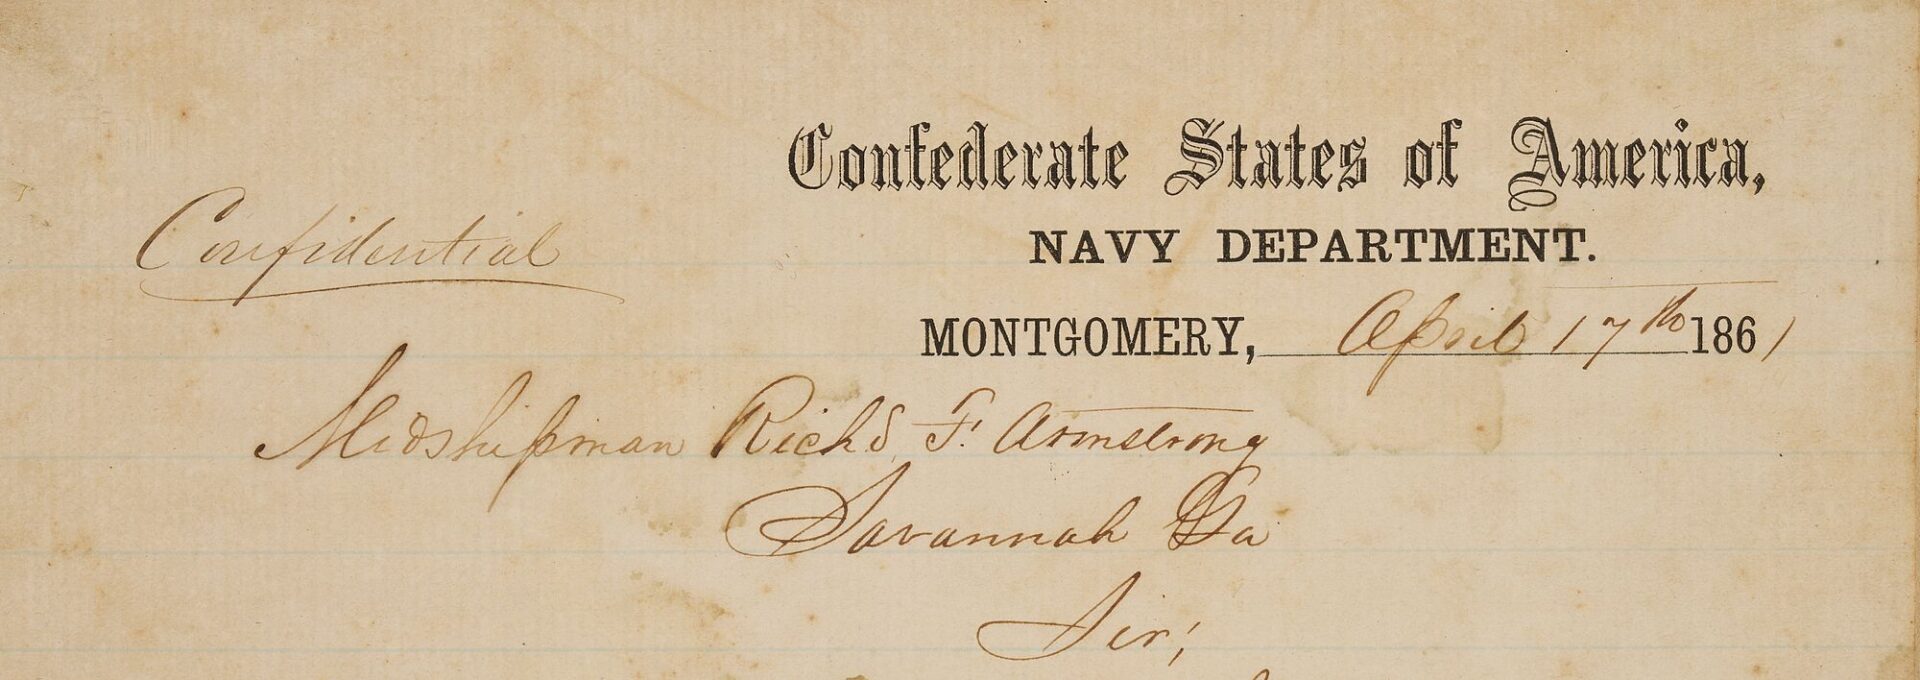 Confederate States of America,
NAVY DEPARTMENT.
Confidential
MONTGOMERY, April 17th 1861
Midshipman Richd. F. Armstrong
Savannah Ga
Sir;